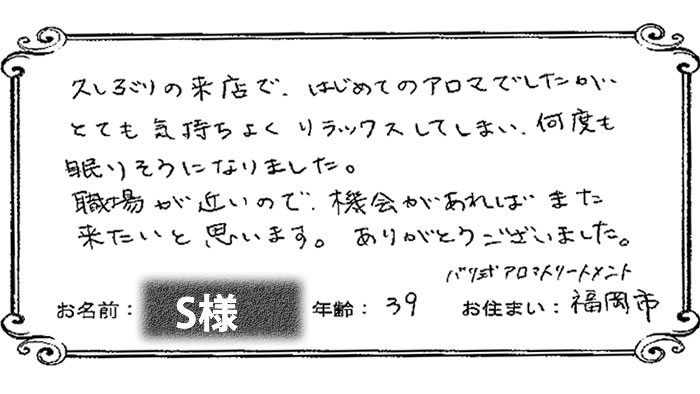 久しぶりの来店で、はじめてのアロマでしたが、
とても気持ちよくリラックスしてしまい、何度も
眠りそうになりました。
職場が近いので、機会があればまた
来たいと思います。ありがとうございました。
バリ式アロマトリートメント
お名前： S様 年齢： 39 お住まい： 福岡市